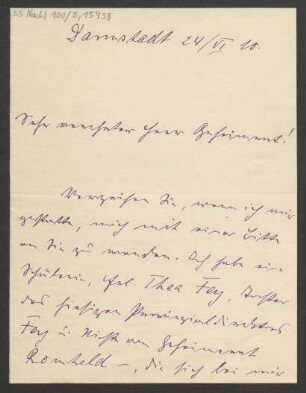 SS Nachl 100/B, 15438
Darmstadt 24/VI 10.
Sehr verehrter Herr Geheimrat!
Verzeihen Sie, wenn ich mir
gestatte, mich mit einer Bitte
an Sie zu wenden. Ich habe eine
Schülerin, Frl. Thea Fey, Tochter
des hiesigen Provinzialdirektors
Fey u. Nichte von Geheimrat
Romheld –, die sich bei mir